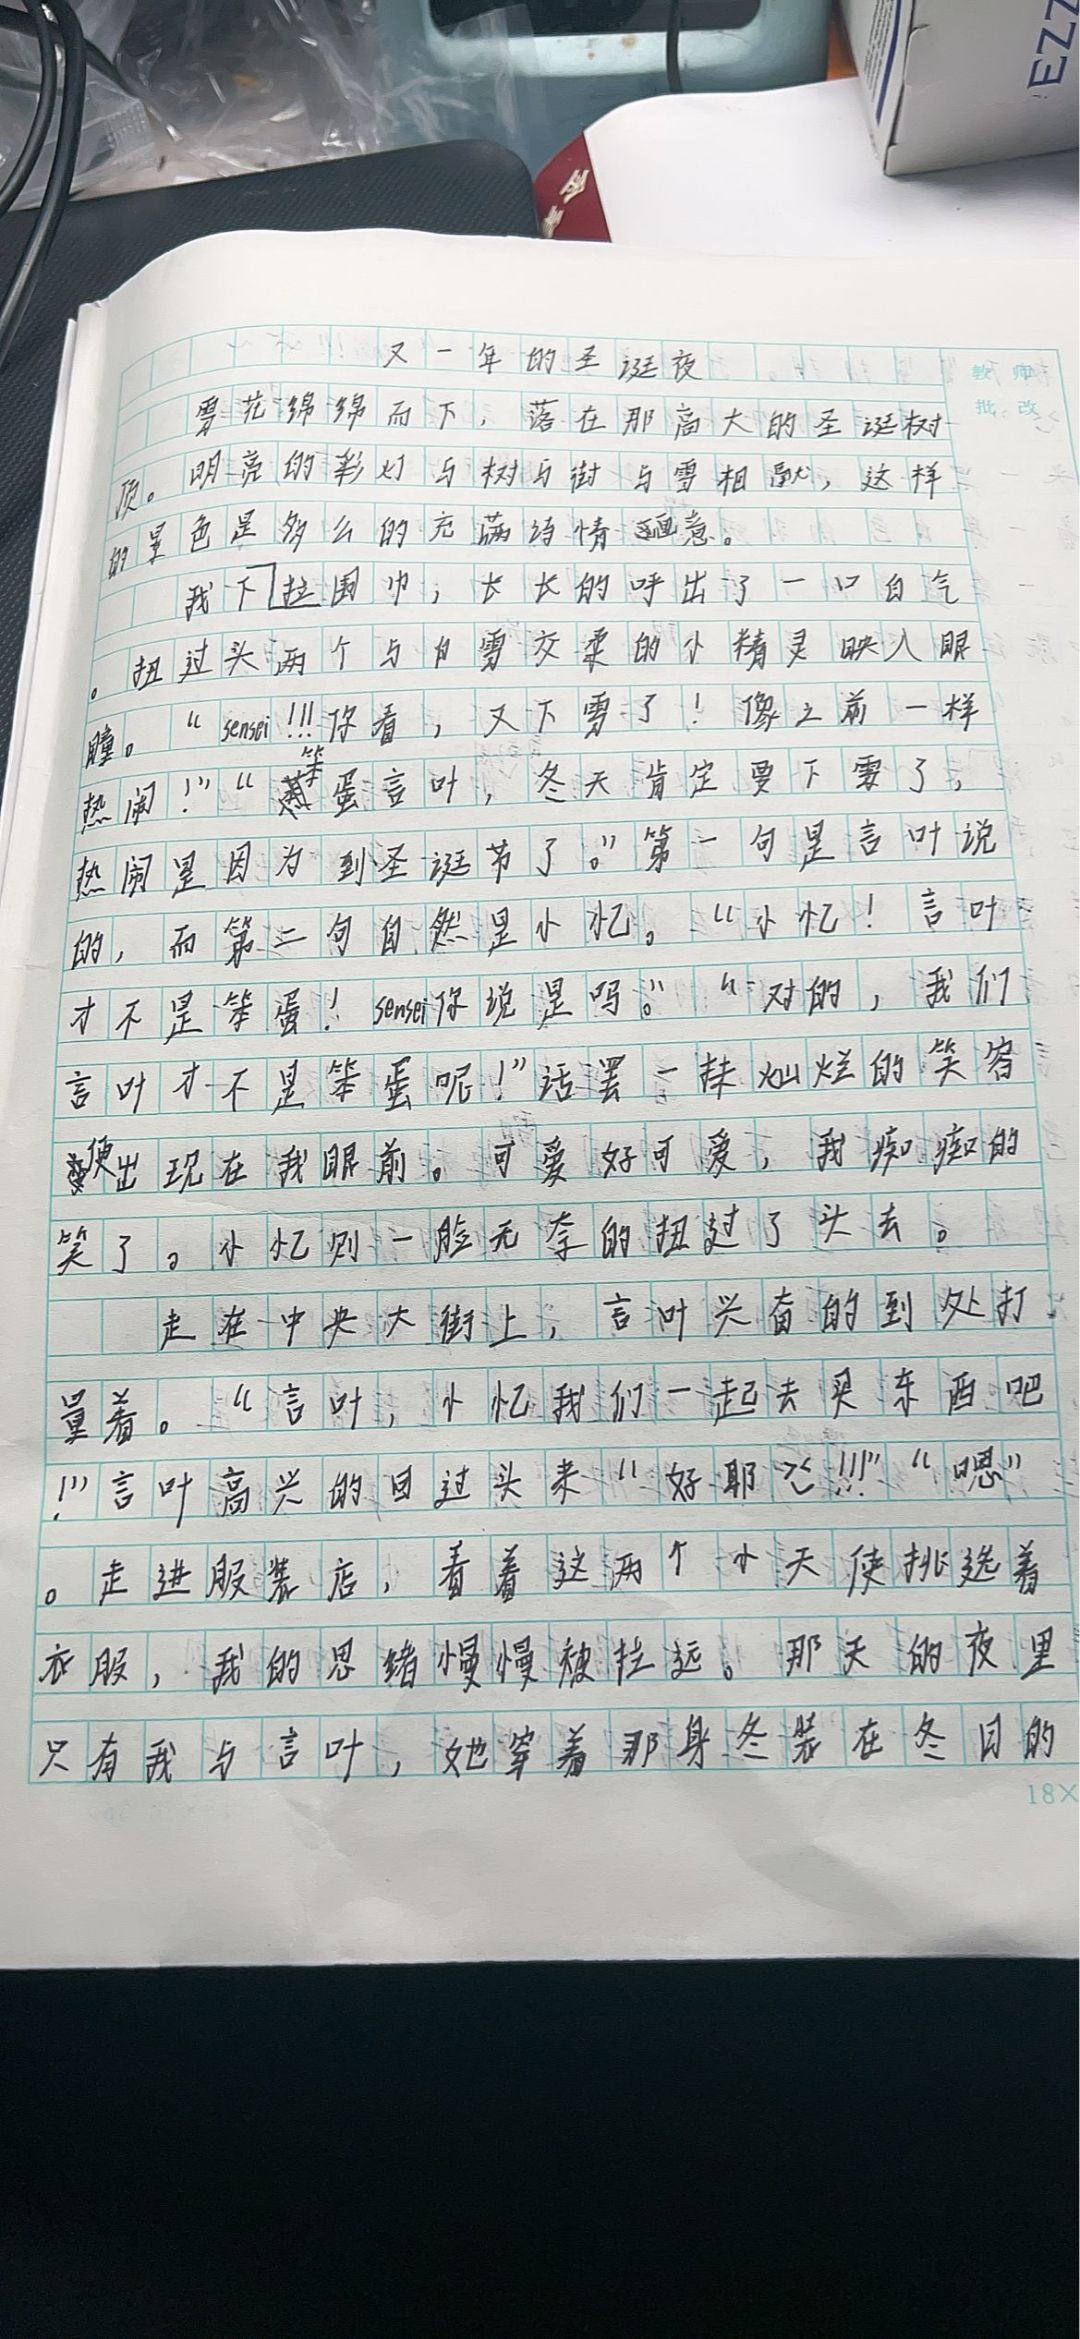 EZZ
教师
批改
又一年的圣诞夜
雪花绵绵而下，落在那高大的圣诞树
顶。明亮的彩灯与树与街与雪相融，这样
的景色是多么的充满诗情画意。
我下拉围巾，长长的呼出了一口白气
。扭过头两个与白雪交柔的小精灵映入眼
瞳。“sensei!!!你看，又下雪了！像之前一样
热闹！”“笨蛋言叶，冬天肯定要下雪了，
热闹是因为到圣诞节了。”第一句是言叶说
的，而第二句自然是小忆。“小忆！言叶
才不是笨蛋！sensei你说是吗。”“对的，我们
言叶才不是笨蛋呢！”话罢一抹灿烂的笑容
便出现在我眼前。可爱好可爱，我痴痴的
笑了。小忆则一脸无奈的扭过了头去。
走在中央大街上，言叶兴奋的到处打
量着。“言叶，小忆我们一起去买东西吧
！”言叶高兴的回过头来“好耶!!!”“嗯”
。走进服装店，看着这两个小天使挑选着
衣服，我的思绪慢慢被拉远。那天的夜里
只有我与言叶，她穿着那身冬装在冬日的
18×